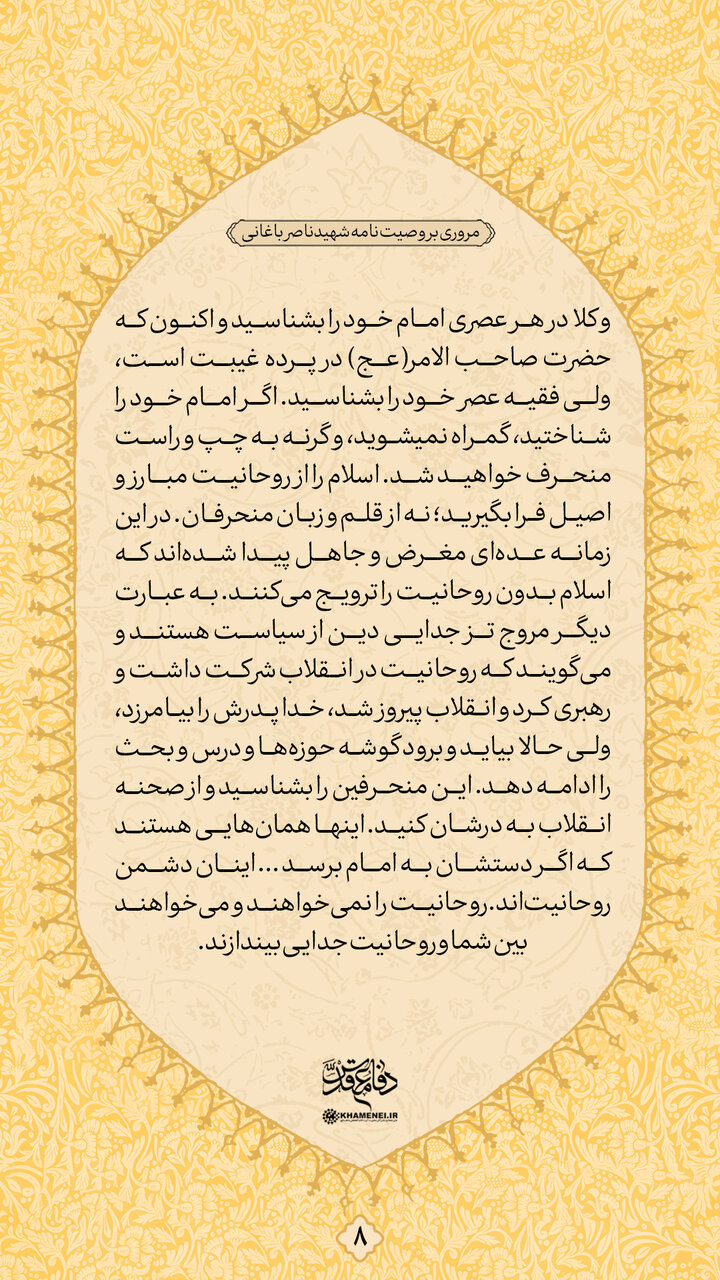 مروری بر وصیت نامه شهید ناصر باغانی
و کلا در هر عصری امام خود را بشناسید و اکنون که
حضرت صاحب الامر(عج) در پرده غیبت است،
ولی فقیه عصر خود را بشناسید. اگر امام خود را
شناختید، گمراه نمیشوید، وگرنه به چپ و راست
منحرف خواهید شد. اسلام را از روحانیت مبارز و
اصیل فرا بگیرید؛ نه از قلم و زبان منحرفان. در این
زمانه عده‌ای مغرض و جاهل پیدا شده‌اند که
اسلام بدون روحانیت را ترویج می‌کنند. به عبارت
دیگر مروج تز جدایی دین از سیاست هستند و
می‌گویند که روحانیت در انقلاب شرکت داشت و
رهبری کرد و انقلاب پیروز شد، خدا پدرش را بیامرزد،
ولی حالا بیاید و برود گوشه حوزه‌ها و درس و بحث
را ادامه دهد. این منحرفین را بشناسید و از صحنه
انقلاب به درشان کنید. اینها همان‌هایی هستند
که اگر دستشان به امام برسد... اینان دشمن
روحانیت‌اند. روحانیت را نمی‌خواهند و می‌خواهند
بین شما و روحانیت جدایی بیندازند.
دفاع مقدس
KHAMENEI.IR
۸